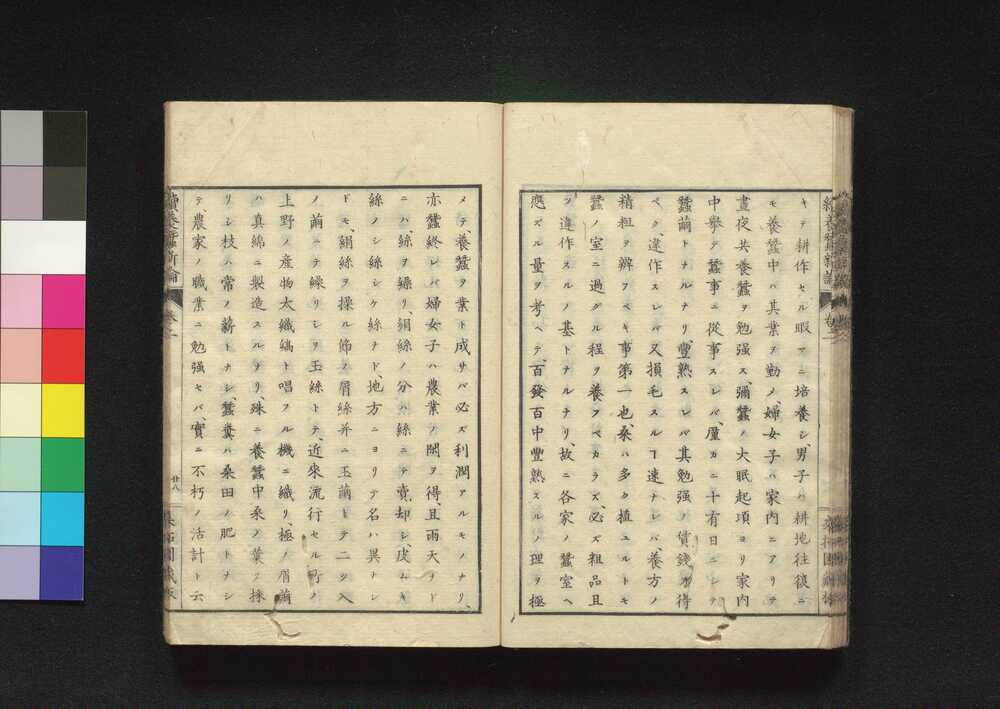 キテ耕作セル暇マニ培養シ、男子ハ耕地往復ニ
モ養蠶中ハ其業ヲ勤メ、婦女子ハ家内ニアリテ
晝夜共養蠶ヲ勉强ス、彌蠶ノ大眠起項ヨリ家内
中擧テ蠶事ニ從事スレバ、廑カニ十有日ニシテ
蠶繭トナルナリ、豐熟スレバ其勉强ノ賃錢ヲ得
ベク、違作スレバ又損毛スルヿ速ナレバ、養方ノ
精粗ヲ辨フベキ事第一也、桑ハ多カ植ユルトモ
蠶ノ室ニ過グル程ヲ養フベカラズ、必ズ粗品且
ツ違作スルノ基トナルナリ、故ニ各家ノ蠶室ヘ
應ズル量ヲ考ヘテ、百發百中豐熟スルノ理ヲ極
メテ、養蠶ヲ業ト成サバ必ズ利潤アルモノナリ、
亦蠶終レバ婦女子ハ農業ノ閑ヲ得、且雨天ナド
ニハ、絲ヲ繰リ、絹絲ノ分ハ絲ニテ賣却シ、皮ムキ
絲ノシ絲シケ絲ナド、地方ニヨリテ名ハ異ナレ
ドモ、絹絲ヲ操ル節ノ屑絲并ニ玉繭トテ二ツ入
ノ繭ニテ繰リシヲ玉絲トテ、近來流行セル所ノ
上野ノ産物太織縞ト唱フル機ニ織リ、極ノ屑繭
ハ真綿ニ製造スルナリ、殊ニ養蠶中桑ノ葉ヲ採
リシ枝ハ常ノ薪トナシ、蠶糞ハ桑田ノ肥トナシ
テ、農家ノ職業ニ勉强セバ、實ニ不朽ノ活計ト云
續養蠶新論
卷之一
廿八